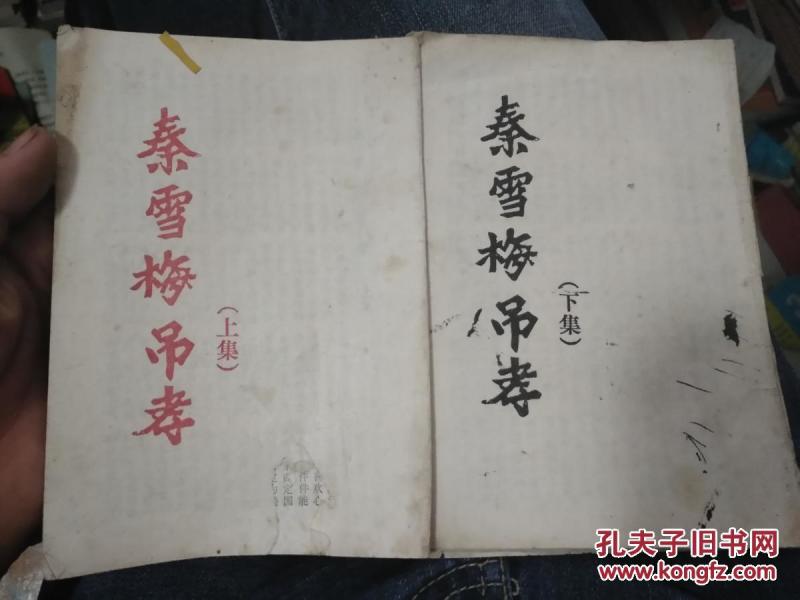 秦雪梅吊孝
(上集)
秦雪梅吊孝
(下集)
孔夫子旧书网
www.kongfz.com